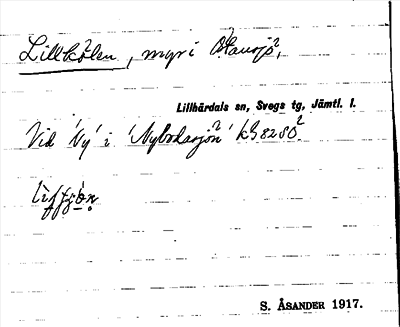 Lillkölen, myr i Olansjö,
Lillhärdals sn, Svegs tg, Jämtl. l.
Vid 'Ny' i 'Nybodasjön'
S. ÅSANDER 1917.